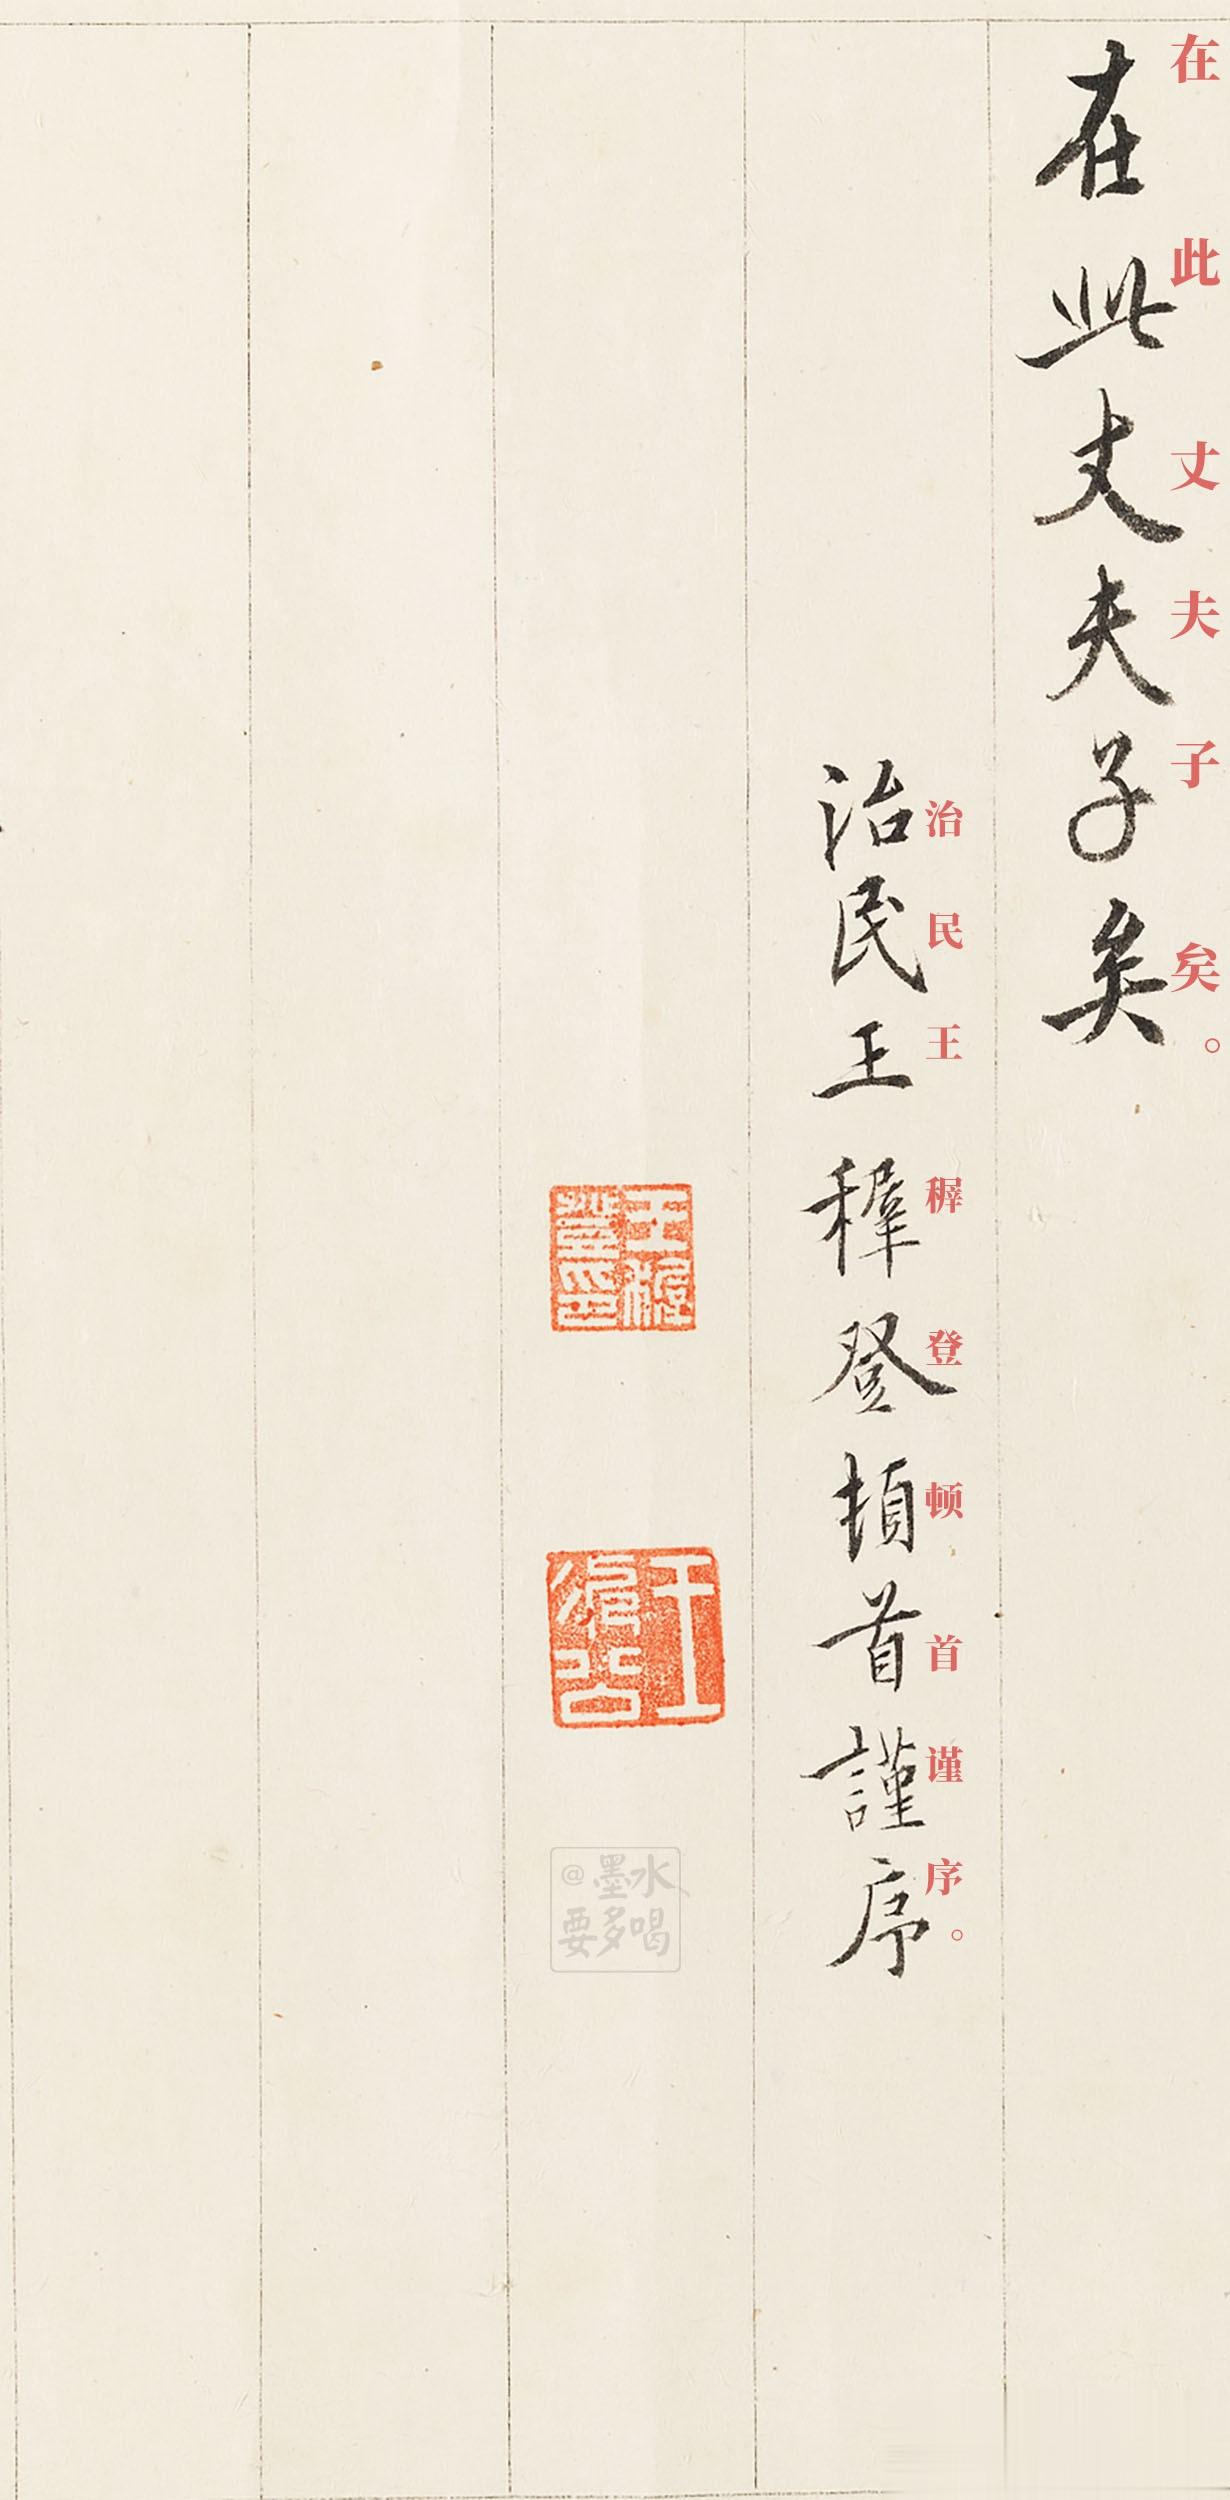 在此丈夫子矣。
在此丈夫子矣
治民王稺登顿首谨序。
治民王稺登頓首謹序
王稺
登印
王
@墨水
要多喝